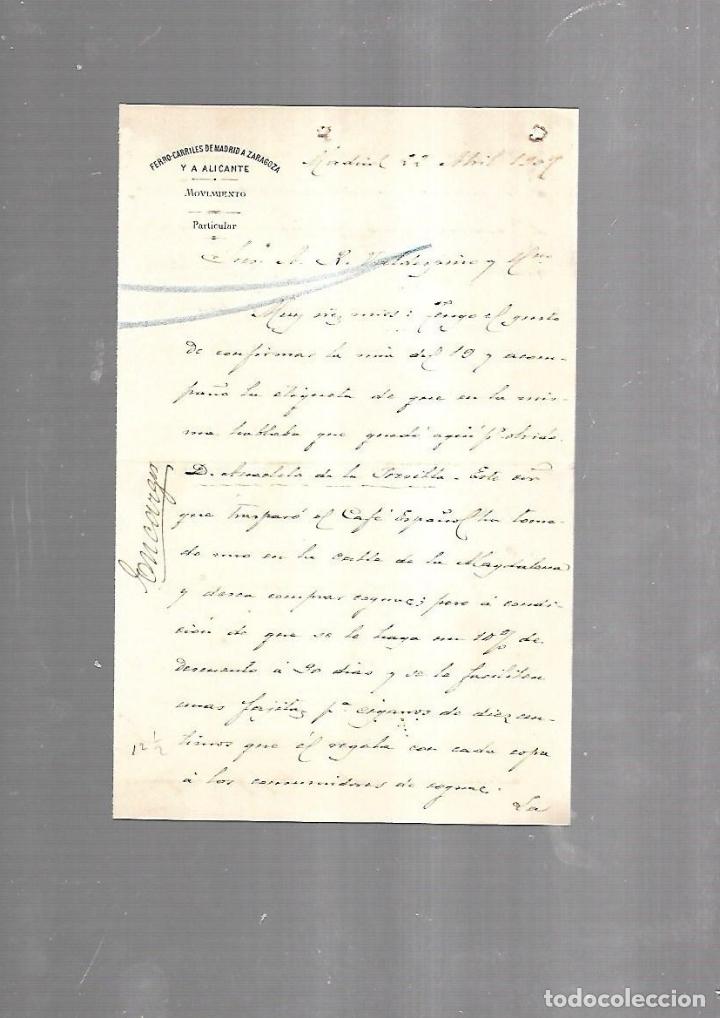 FERRO-CARRILES DE MADRID A ZARAGOZA
Y A ALICANTE
MOVIMIENTO
Particular
Madrid 22 Abril 1907
Sres. A. R. Valdespino y Hno
Muy Sres mios: Tengo el gusto
de confirmar la mia del 19 y acom-
paño la etiqueta de que en la mis-
ma hablaba que quedó aquí pr olvido.
D. de la Este Sr
que traspasó el Café Español ha toma-
do uno en la calle de la Magdalena
y desea comprar cognac; pero á condi-
ción de que se le haga un 10% de
descuento á 90 dias y se le faciliten
unas tarjetas pa cigarros de diez cen-
timos que él regala con cada copa
á los consumidores de cognac.
La
Encargos
12 1/2
todocoleccion
todocoleccion.net